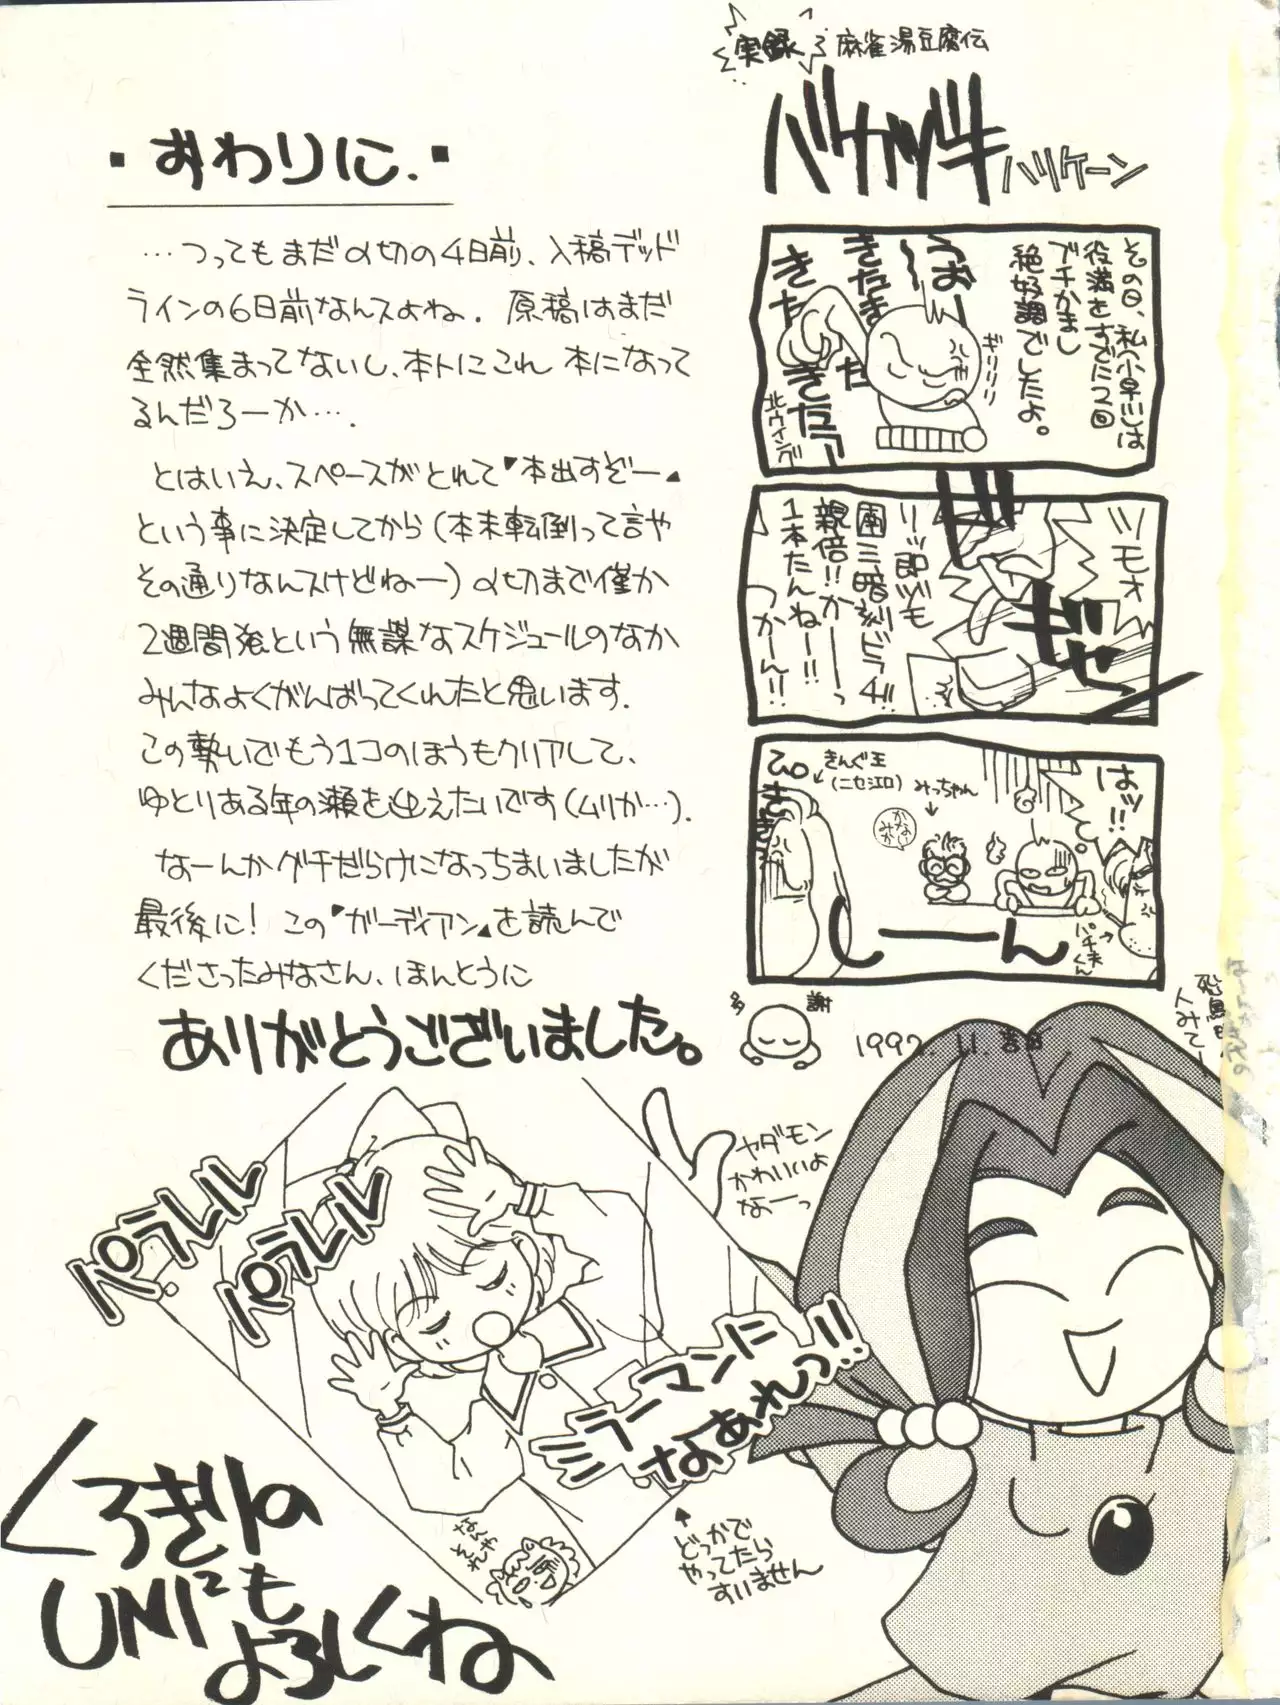 ・おわりに.・
…つってもまだ〆切の4日前、入稿デッド
ラインの6日前なんスよね. 原稿はまだ
全然集まってないし、本トにこれ 本になって
るんだろーか….
とはいえ、スペースがとれて「本出すぞー」
という事に決定してから(本末転倒って言や
その通りなんスけどねー)〆切まで僅か
2週間強という無謀なスケジュールのなか
みんなよくがんばってくれたと思います.
この勢いでもう1コのほうもクリアして、
ゆとりある年の瀬を迎えたいです(ムリか…).
なーんかグチだらけになっちまいましたが
最後に! この「ガーディアン」を読んで
くださったみなさん、ほんとうに
ありがとうございました。
多謝
1992. 11.
実録 麻雀湯豆腐伝
バカヅキ
ハリケーン
その日、私(小早)は
役満をすでに2回
ブチかまし
絶好調でしたよ。
うおー
きたきた
きた
きたー
ギリリリ
北ウイング
ツモォ
リーッ即ヅモ
南三暗刻ドラ4!!
親倍!!かーーっ
1本たんねー!!
つかーん!!
ギャン
はッ!!
きんぐ王
(ニセ江口)
みっちゃん
かない
みか
ぴきき
パチ夫くん
しーーん
ヤダモン
かわいいよ
なーっ
パラレル
パラレル
ミラーマンに
なあれっ!!
なんや
どっかで
やってたら
すいません
くろきりの
UNI²も
よろしくね